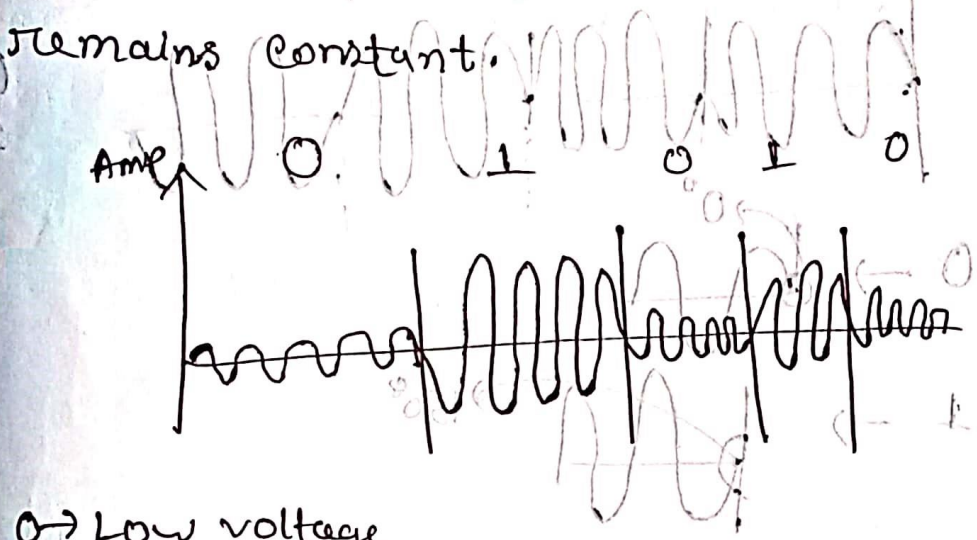 remains constant.
Amp
0 1 0 1 0
0 → Low voltage